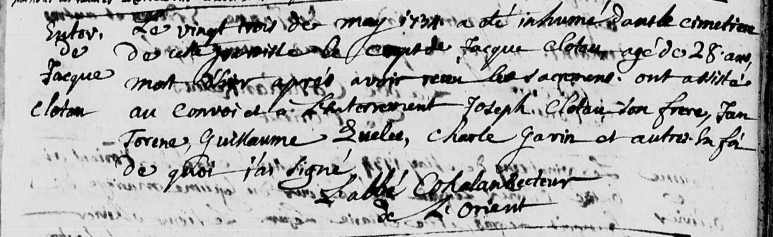 Enter. Le vingt trois de may 1731 a été inhumé dans le cimetiere
de de cette parroisse le corps de Jacque Clotau agé de 28 ans,
Jacque mort hier apres avoir receu les sacremens. ont assisté
Clotau au convoi et à l'enterrement Joseph Clotau son frere, Jan
Torene, Guillaume Quelec, Charle Garin et autres En foi
de quoi j'ai signé
L'abbé Cohalan Recteur
de L'Orient